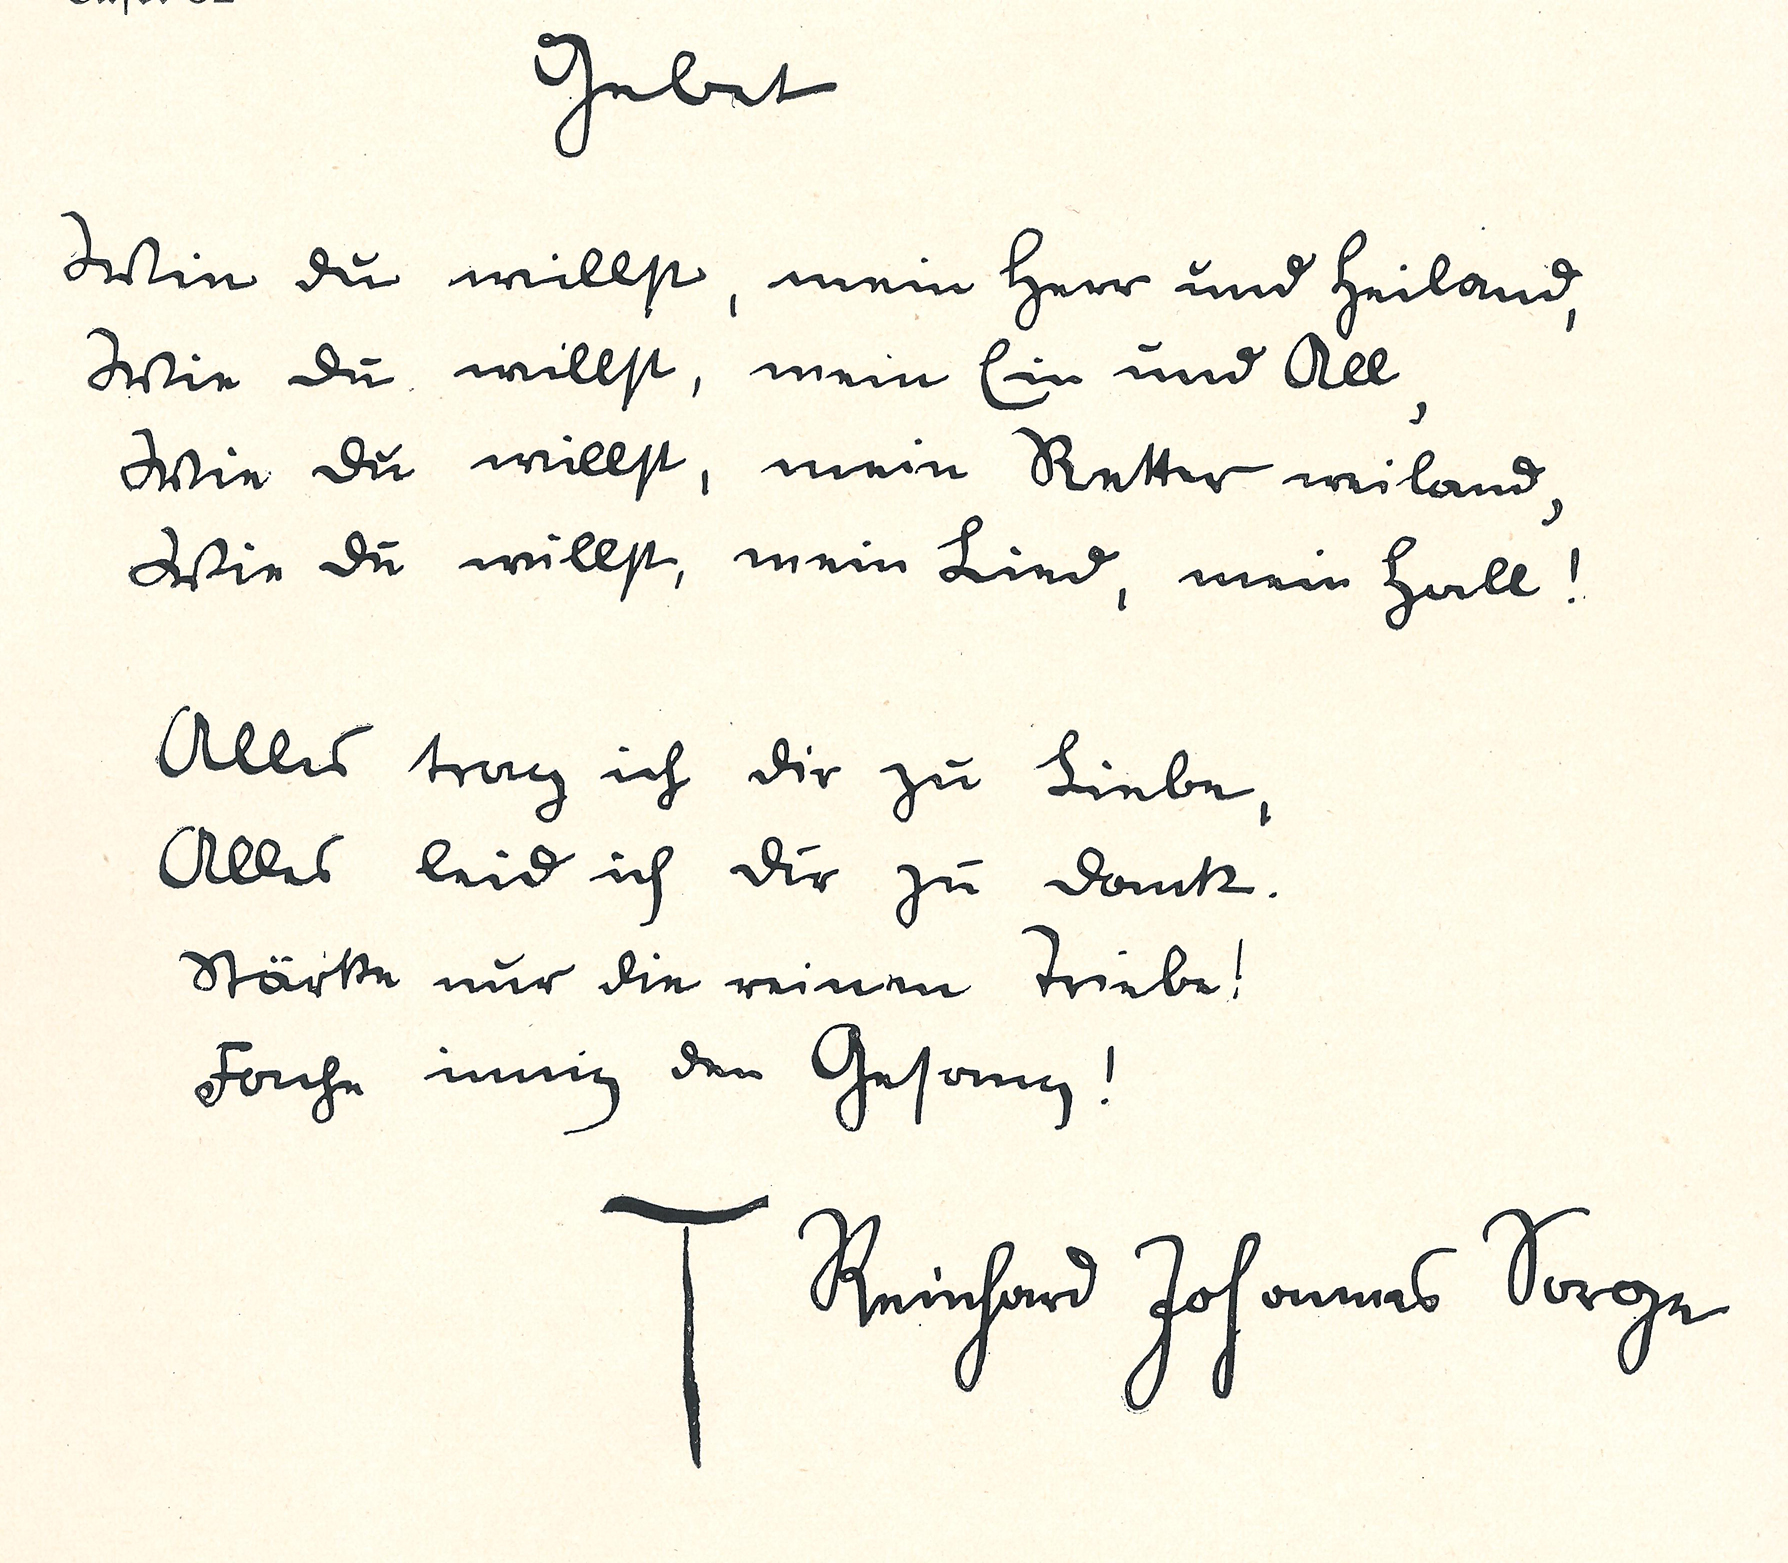 Gebet
Wie du willst, mein Herr und Heiland,
Wie du willst, mein Ein und All,
Wie du willst, mein Retter weiland,
Wie du willst, mein Lied, mein Hall!
Alles trag ich dir zu Liebe,
Alles leid ich dir zu Dank.
Stärke nur die reinen Triebe!
Fache innig den Gesang!
Reinhard Johannes Sorge